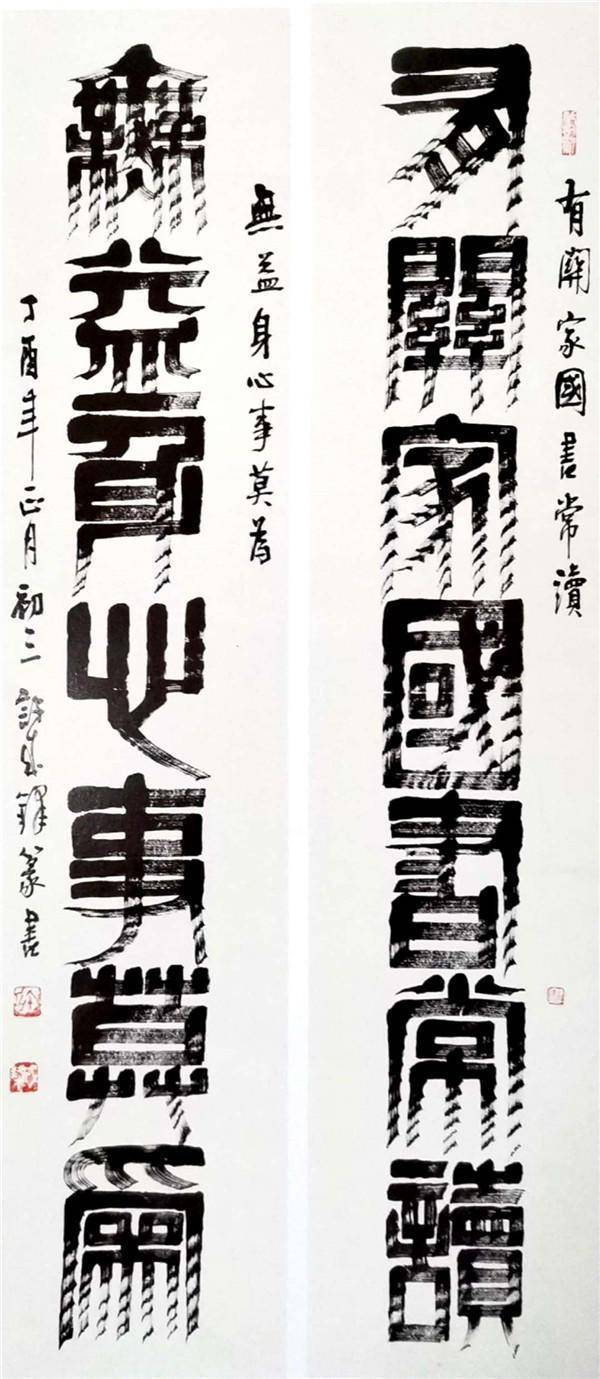 有關家國書常讀
有關家國書常讀
無益身心事莫為
無益身心事莫為
丁酉年正月初三 許成 篆書